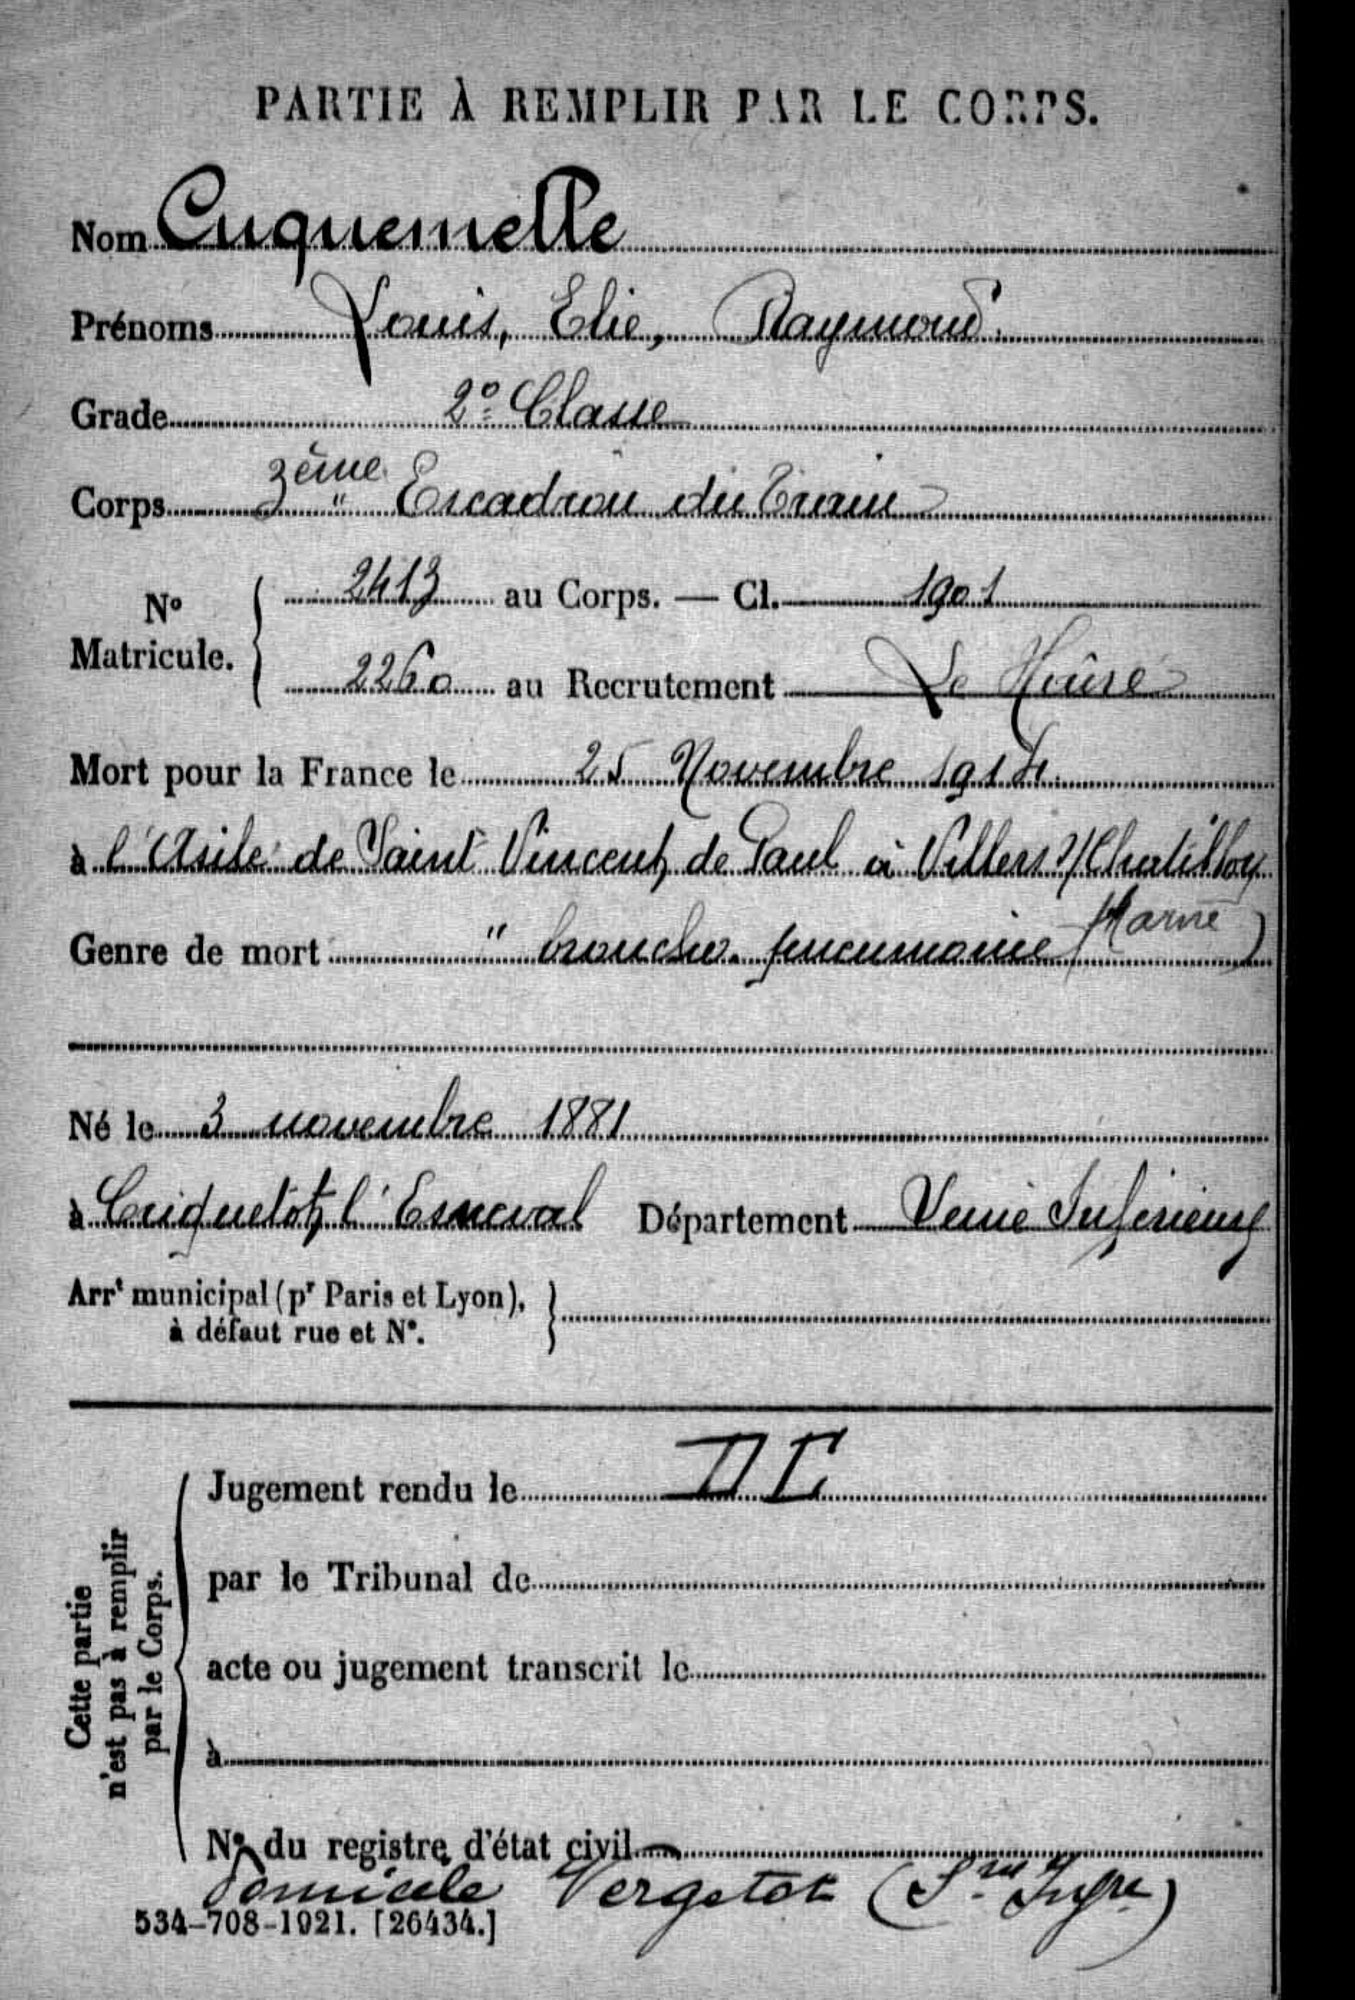 PARTIE À REMPLIR PAR LE CORPS.
Nom Cuquemelle
Prénoms Louis, Elie, Raymond.
Grade 2e Classe
Corps 3ème " Escadron du Train
No Matricule. 2413 au Corps. — Cl. 1901
2260 au Recrutement Le Hâvre
Mort pour la France le 25 Novembre 1914
à l'Asile de Saint Vincent de Paul à Villers s/ Chatillon
(Marne)
Genre de mort " broncho. pneumonie
Né le 3 novembre 1881
à Criquetot l'Esneval Département Seine Inférieure
Arrt municipal (pr Paris et Lyon),
à défaut rue et No.
Cette partie
n'est pas à remplir
par le Corps.
Jugement rendu le DC
par le Tribunal de
acte ou jugement transcrit le
à
No du registre d'état civil
Domicile Vergetot (Sne Infre)
534-708-1921. [26434.]